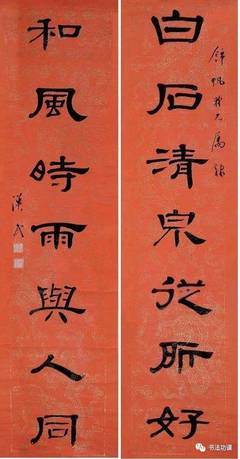 白石清泉從所好
和風時雨與人同
漢民
书法功课